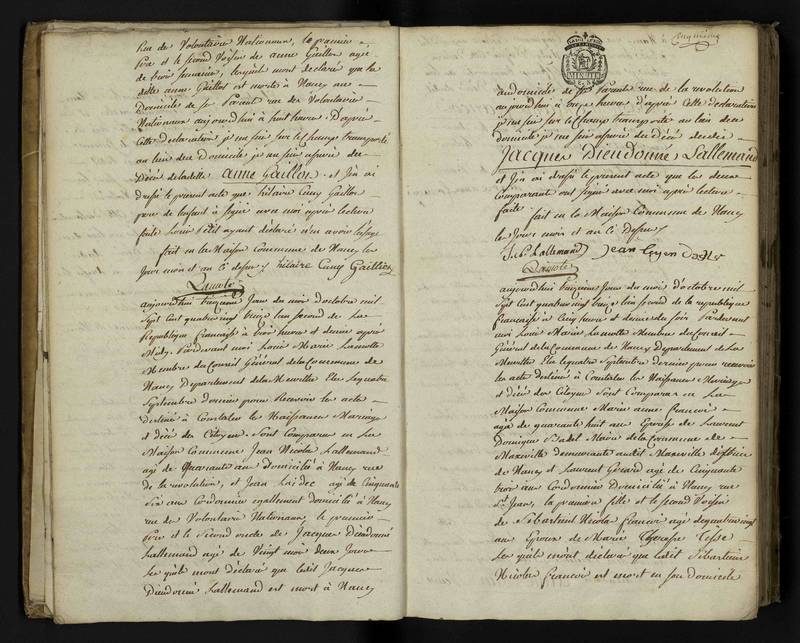 Rue des Volontaires Nationaux, le premier
Pere et le second Voisin de anne Gaillon agée
de trois semaines, lesquels mont declaré que la
ditte anne Gaillot est morte à Nancy au
Domicile de ses Parents rue des Volontaires
Nationaux aujourdhui à huit heures. D'après
Cette declaration je me suis sur le champ transporté
au lieu du Domicile je me suis assuré du
Décès de ladite anne Gaillon et j'en ai
dressé le présent acte que hilaire Cuny Gaillon
pere de lenfant à signé avec moi après lecture
faite Louis petit ayant déclaré n'en avoir lusage
fait en la Maison Commune de Nancy les
Jour mois et an ci dessus hilaire Cuny Gaillion
Lamotte
aujourdhui treizieme Jour du mois d'octobre mil
Sept Cent quatre vingt treize l'an second de La
Republique Française à trois heures et demie après
Midy. Pardevant moi Louis Marie Lamotte
Membre du Conseil Général de la Commune de
Nancy Departement de la Meurthe Elu le quatre
Septembre dernier pour Recevoir les actes
destinés à Constater les Naissances Mariages
et décès des Citoyens. Sont Comparus en La
Maison Commune Jean Nicolas Lallemand
agé de quarante ans domicilié à Nancy rue
de la revolution, et Jean Lui agé de Cinquante
Six ans Cordonnier egallement domicilié à Nancy
rue des Volontaires Nationaux le premier
Pere et le second oncle de Jacques Dieudonné
Lallemand agé de Vingt mois deux Jours
Lesquels mont déclaré que ledit Jacques
Dieudonné Lallemand est mort à Nancy
au domicile de ses Parents rue de la revolution
aujourdhui à onze heures d'après Cette declaration
je me suis sur le champ transporté au lieu du
domicile je me suis assuré du Décès dudit
Jacques Dieudonné Lallemand
et j'en ai dressé le présent acte que les deux
Comparants ont signé avec moi après lecture
faite
fait en la Maison Commune de Nancy
les Jour mois et an ci Dessus
Lallemand Jean
Lamotte
aujourdhui treizieme Jour du mois d'octobre mil
Sept Cent quatre vingt treize l'an second de la republique
Française à Cinq heures et demie du soir Pardevant
moi Louis Marie Lamotte Membre du Conseil
Général de la Commune de Nancy Departement de La
Meurthe Elu le quatre Septembre dernier pour recevoir
les actes destinés à Constater les Naissances Mariages
et décès des Citoyens Sont Comparus en La
Maison Commune Marie anne francois
agée de quarante huit ans Epouse de Laurent
Dominique Maire de la Commune de
Maxeville demeurante audit Maxeville district
de Nancy et Laurent Gerard agé de Cinquante
trois ans Cordonnier Domicilié à Nancy rue
St. Jean, la premiere fille et le second Voisin
de Sébastien Nicolas francois agé de quatre vingt
ans Epoux de Marie Therese
Lesquels mont déclaré que ledit Sébastien
Nicolas francois est mort en son domicile